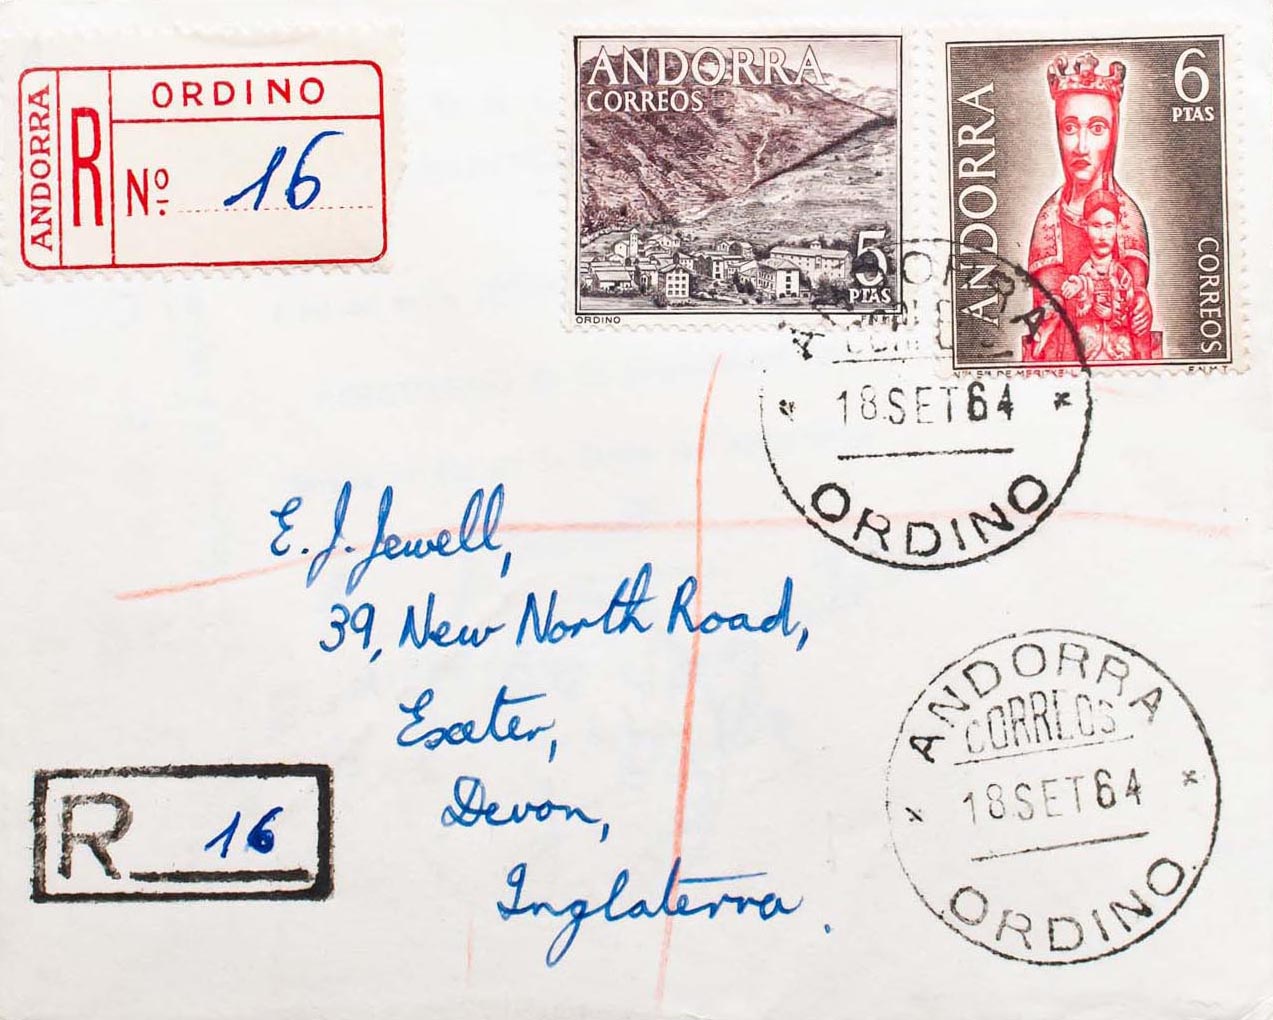 ANDORRA
R
ORDINO
Nº 16
ANDORRA
CORREOS
5
PTAS
ORDINO
F.N.M.T.
ANDORRA
6
PTAS
CORREOS
DE MERITXELL
F.N.M.T.
ANDORRA
CORREOS
18.SET64
ORDINO
E. J. Jewell,
39, New North Road,
Exeter,
Devon,
Inglaterra.
R 16
ANDORRA
CORREOS
18.SET64
ORDINO